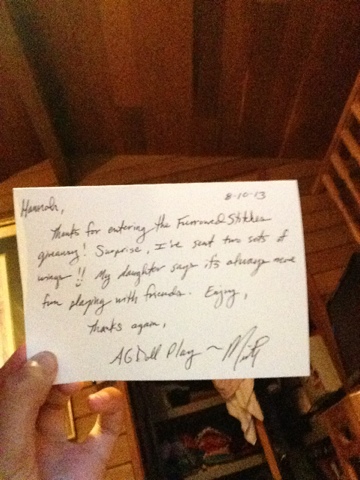 8-10-13
Hannah,
Thanks for entering the Furrowed Stitches
giveaway! Surprise, I've sent two sets of
wings!! My daughter says it's always more
fun playing with friends. Enjoy,
Thanks again,
AG Doll Play ~